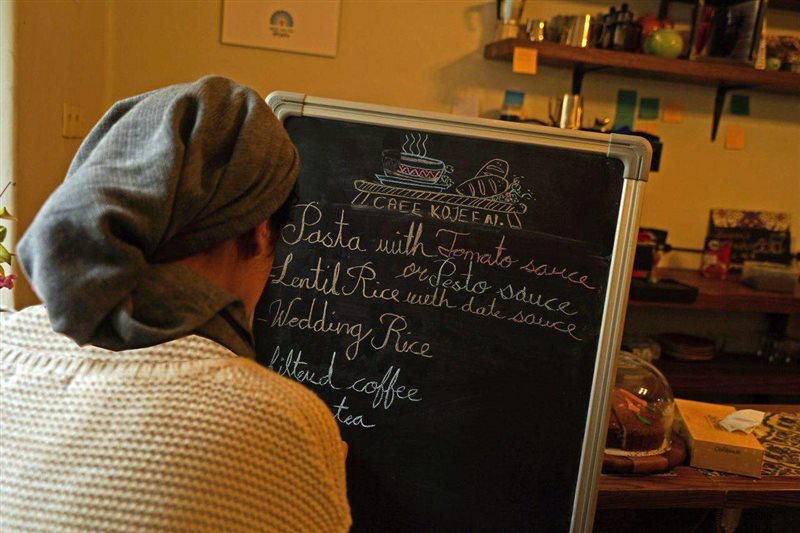 CAFE KOJEEN.
Pasta with Tomato sauce
or Pesto sauce
Lentil Rice with date sauce
Wedding Rice
filtered coffee
tea